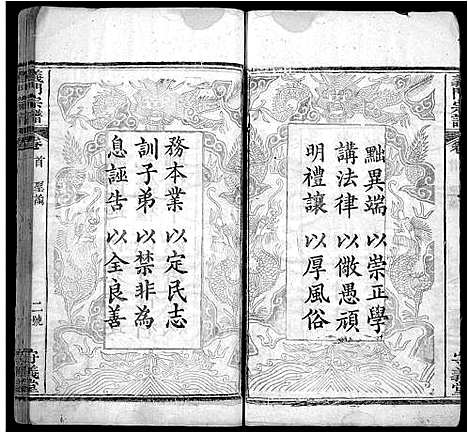 黜異端以崇正學
講法律以儆愚頑
明禮讓以厚風俗
務本業以定民志
訓子弟以禁非為
息誣告以全良善
義門宗譜
卷首
聖諭
二號
守義堂
義門宗譜
卷
守義堂